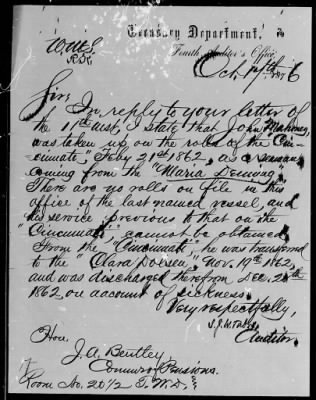 Treasury Department,
Fourth Auditor's Office,
W.W.S.
Oct. 17th 1876
Sir:
In reply to your letter of
the 11th inst, I state that John Mahoney,
was taken up on the rolls of the "Cin-
cinnati", Feby 21st 1862, as a seaman
coming from the "Maria Denning"
There are no rolls on file in this
office of the last named vessel, and
his service previous to that on the
"Cincinnati", cannot be obtained
From the "Cincinnati" he was transferred
to the "Clara Dolsen," Nov. 19th 1862,
and was discharged therefrom Dec. 20th
1862 on account of sickness.
Very respectfully,
Auditor.
Hon.
J. A. Bentley
Commr of Pensions.
Room No. 20 1/2